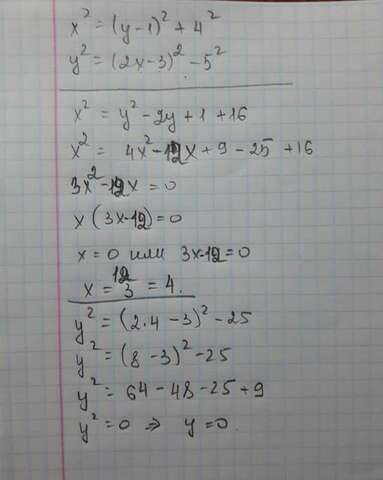 x² = (y-1)² + 4²
y² = (2x-3)² - 5²
x² = y² - 2y + 1 + 16
x² = 4x² - 12x + 9 - 25 + 16
3x² - 12x = 0
x(3x-12) = 0
x = 0 или 3x-12 = 0
x = 12/3 = 4.
y² = (2·4 - 3)² - 25
y² = (8 - 3)² - 25
y² = 64 - 48 - 25 + 9
y² = 0 ⇒ y = 0.